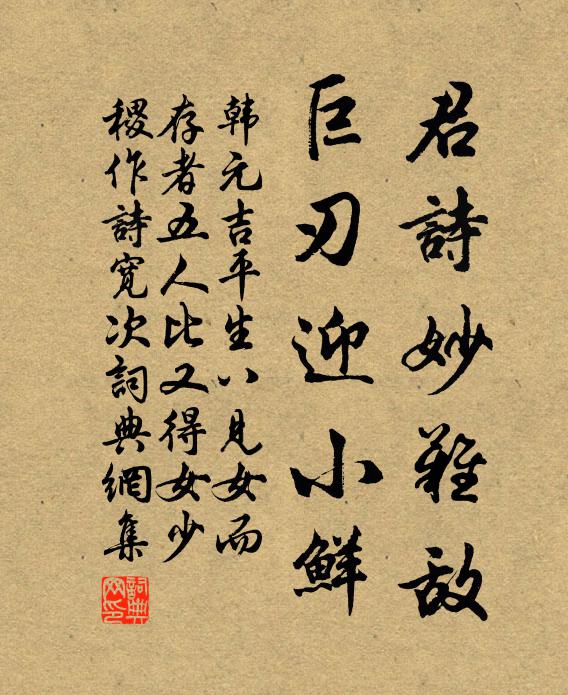 君詩妙難敌
巨刃迎小鮮
韩元吉平生八見女而
存者五人比又得女少
稷作詩寬次詞典網集
詞典网印